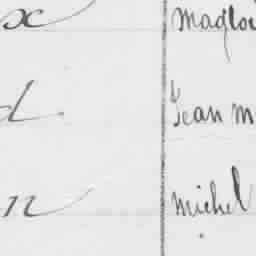 x Magloi
d Jean M
n Michel